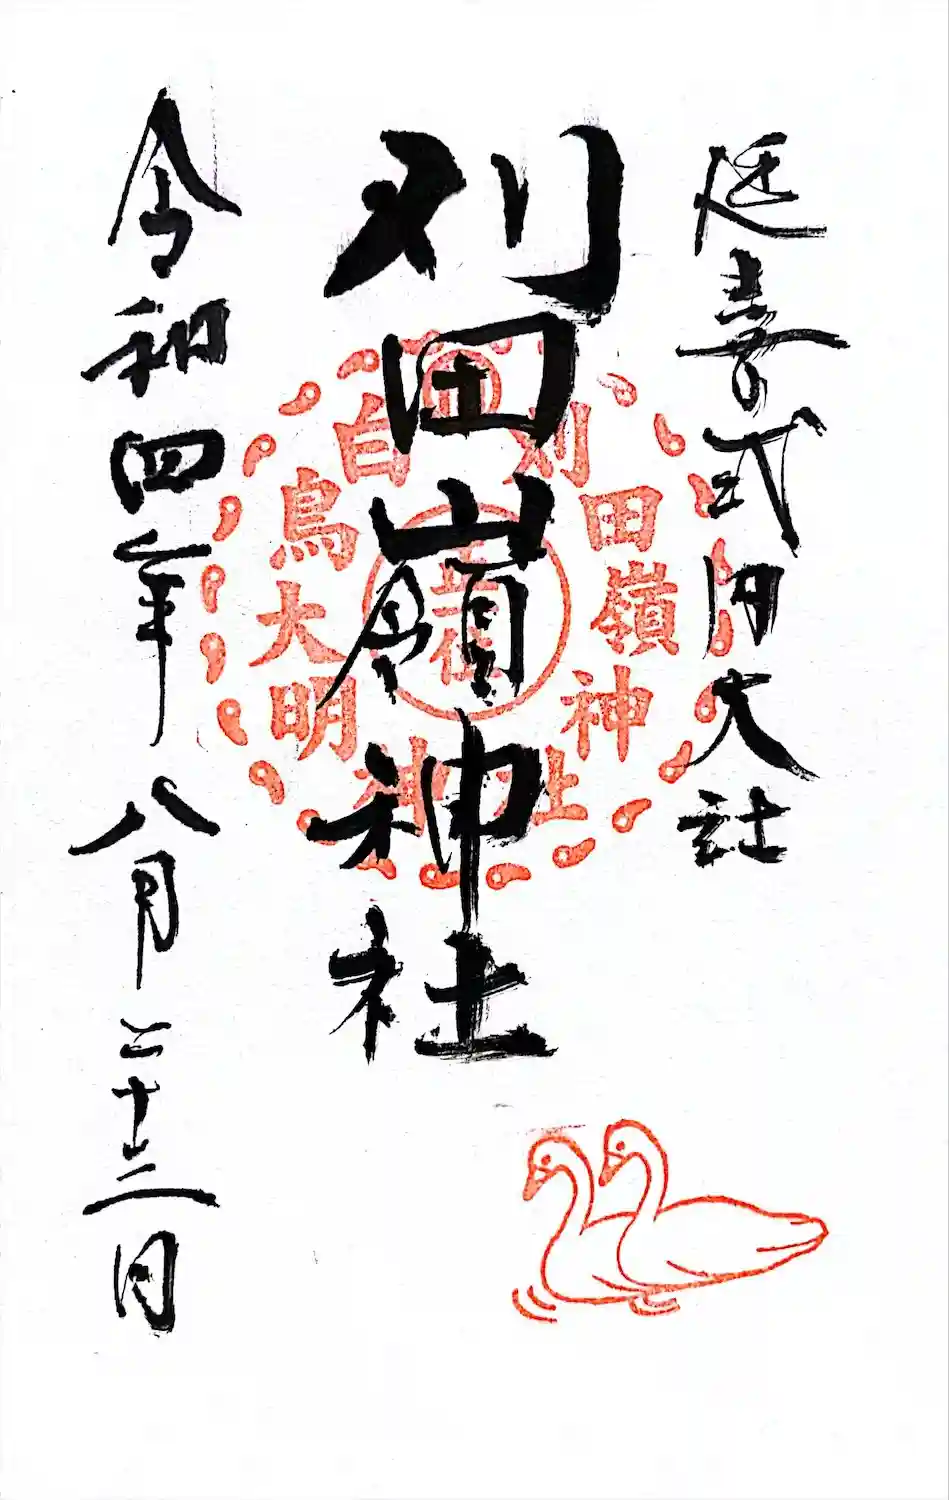 延喜式内大社
刈田嶺神社
令和四年八月二十二日
刈田嶺神社
白鳥大明神